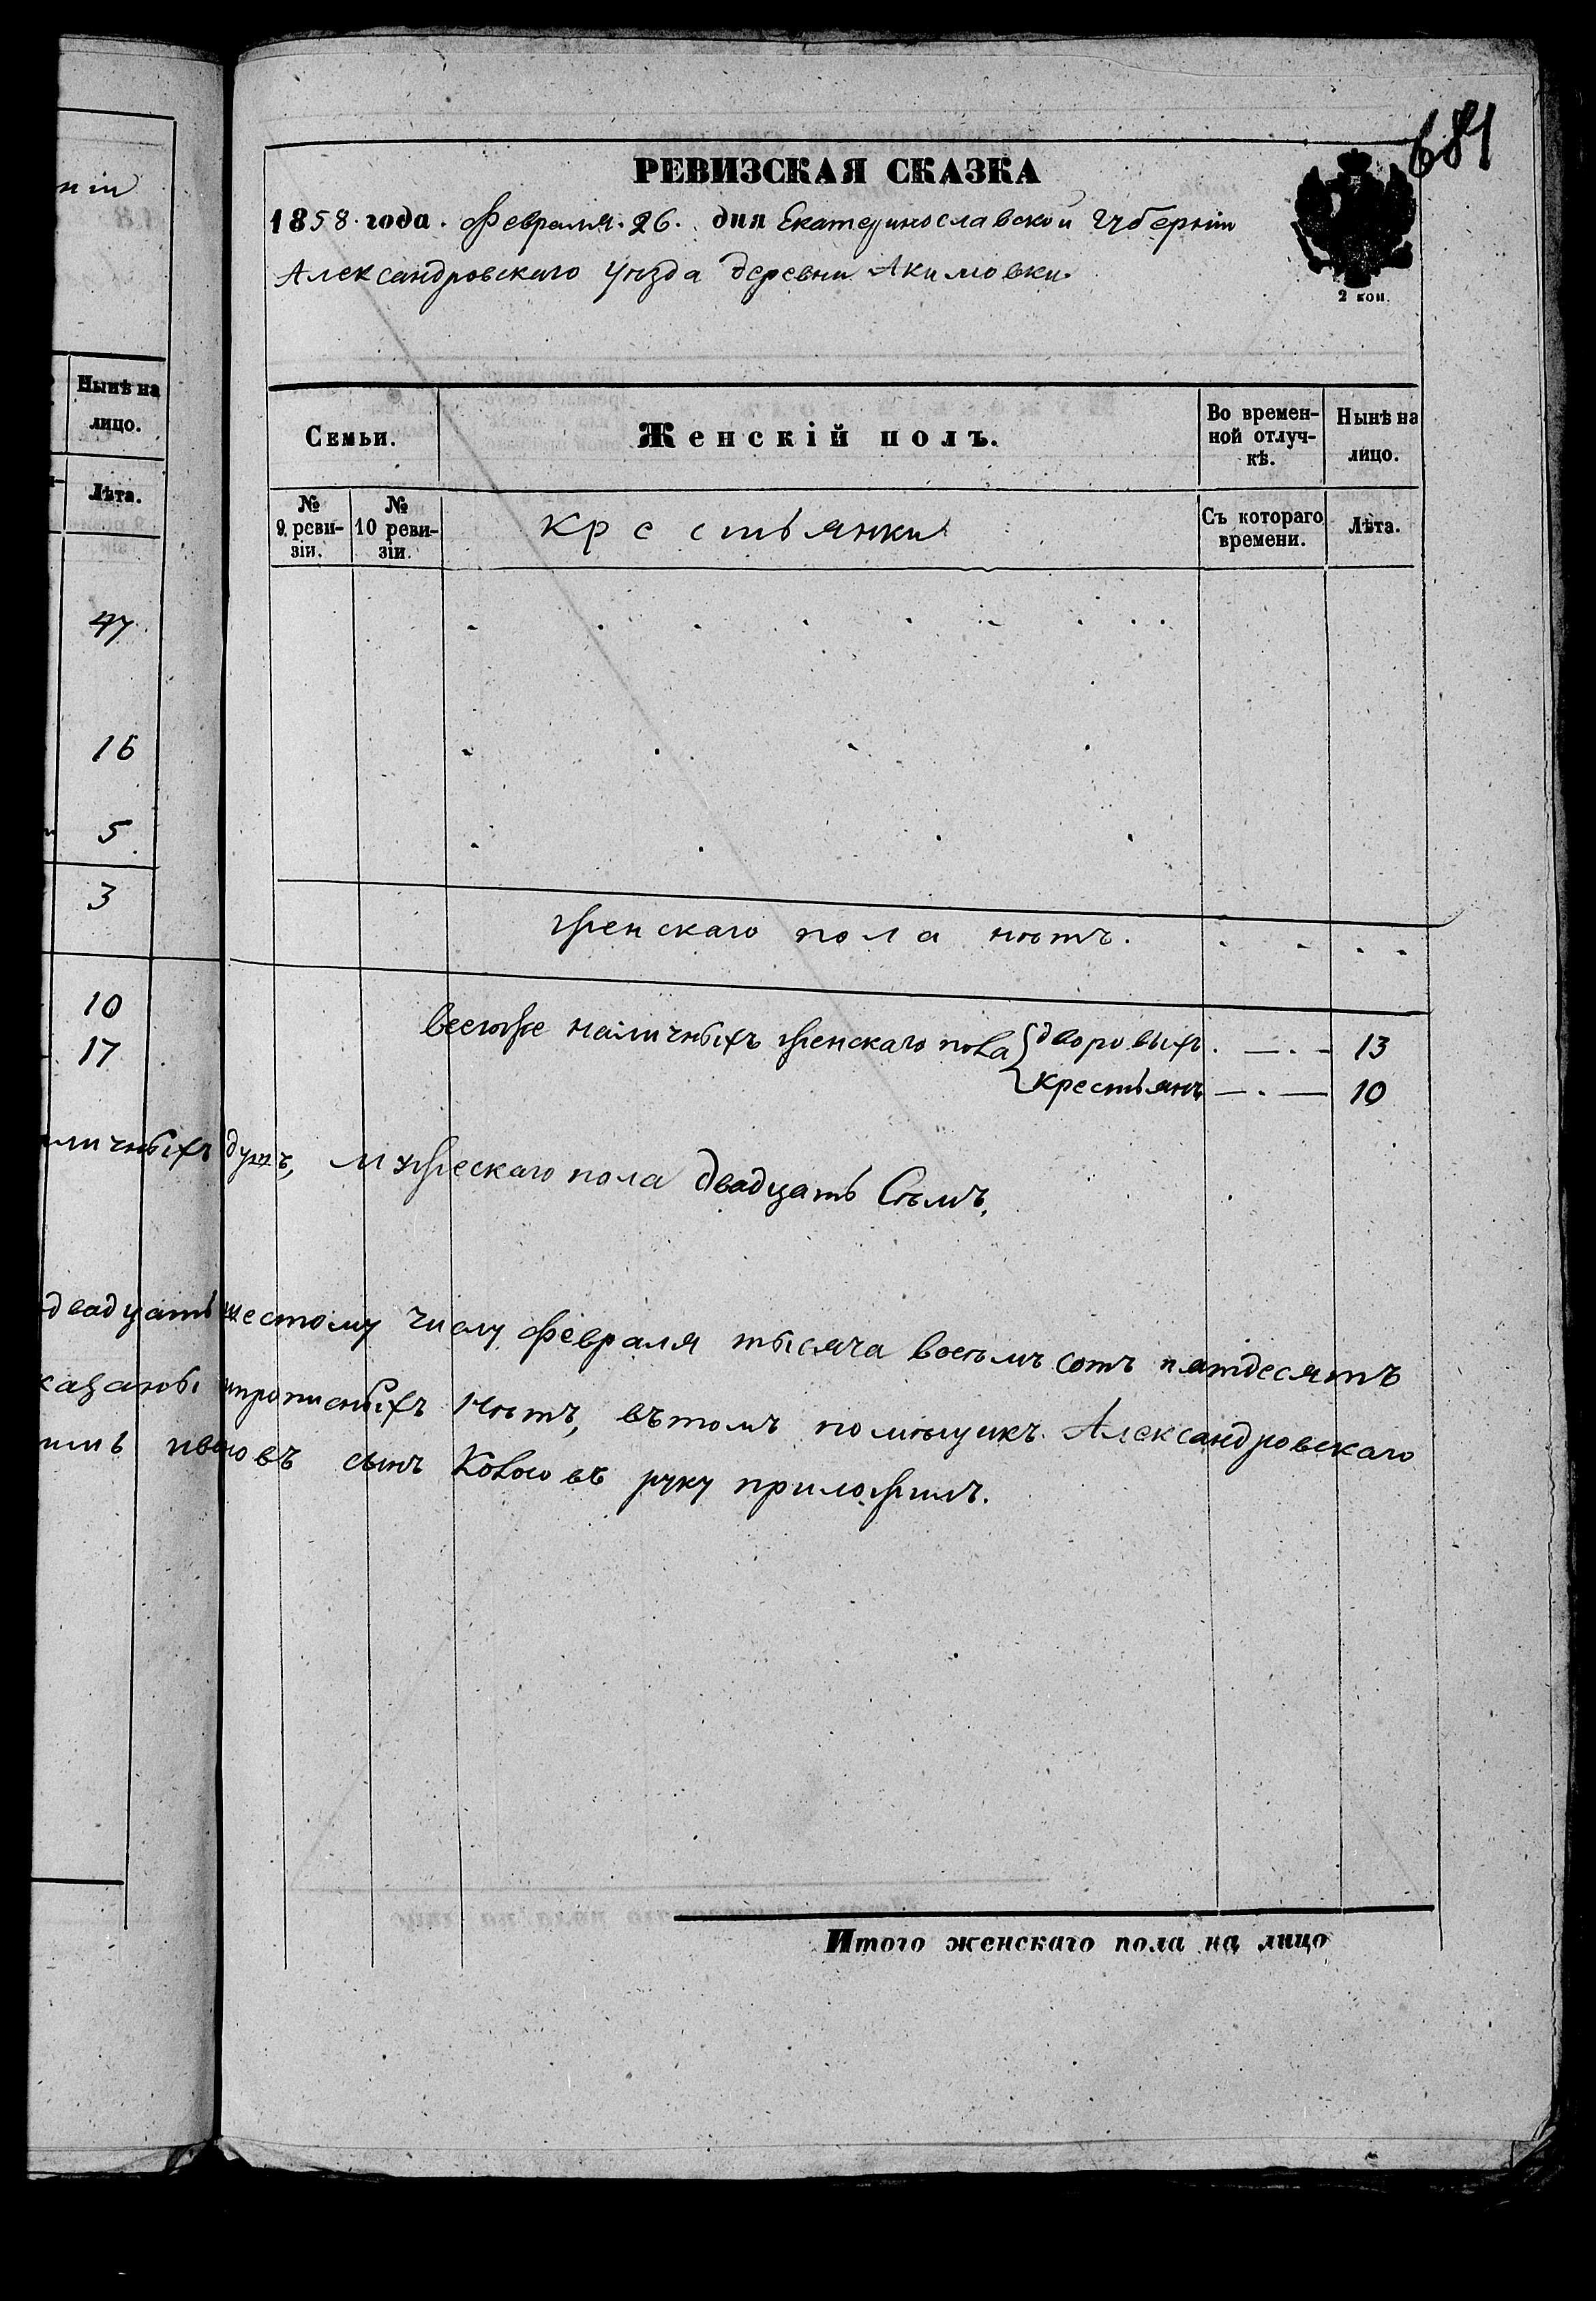 ніи
Нынѣ на
лицо.
Лѣта.
47
16
5
3
10
17
681
РЕВИЗСКАЯ СКАЗКА
1858 года. Февраля. 26. дня Екатеринославской Губерніи
Александровскаго уѣзда деревни Акимовки.
2 коп.
Семьи.
Женскій полъ.
Во времен-
ной отлуч-
кѣ.
Нынѣ на
лицо.
№
9. реви-
зіи.
№
10 реви-
зіи.
Крестьянки
Съ котораго
времени.
Лѣта.
женскаго пола нѣтъ.
всего же наличныхъ женскаго пола { дворовыхъ . — . — 13
крестьянъ — . — 10
личныхъ душъ, мужескаго пола двадцать Сѣмъ,
двадцать шестому числу Февраля тысяча восѣмъ сотъ пятдесятъ
казаны ипрописныхъ Нѣтъ, вътомъ помѣщикъ Александровскаго
ивановъ сынъ Колосовъ руку приложилъ.
Итого женскаго пола на лицо